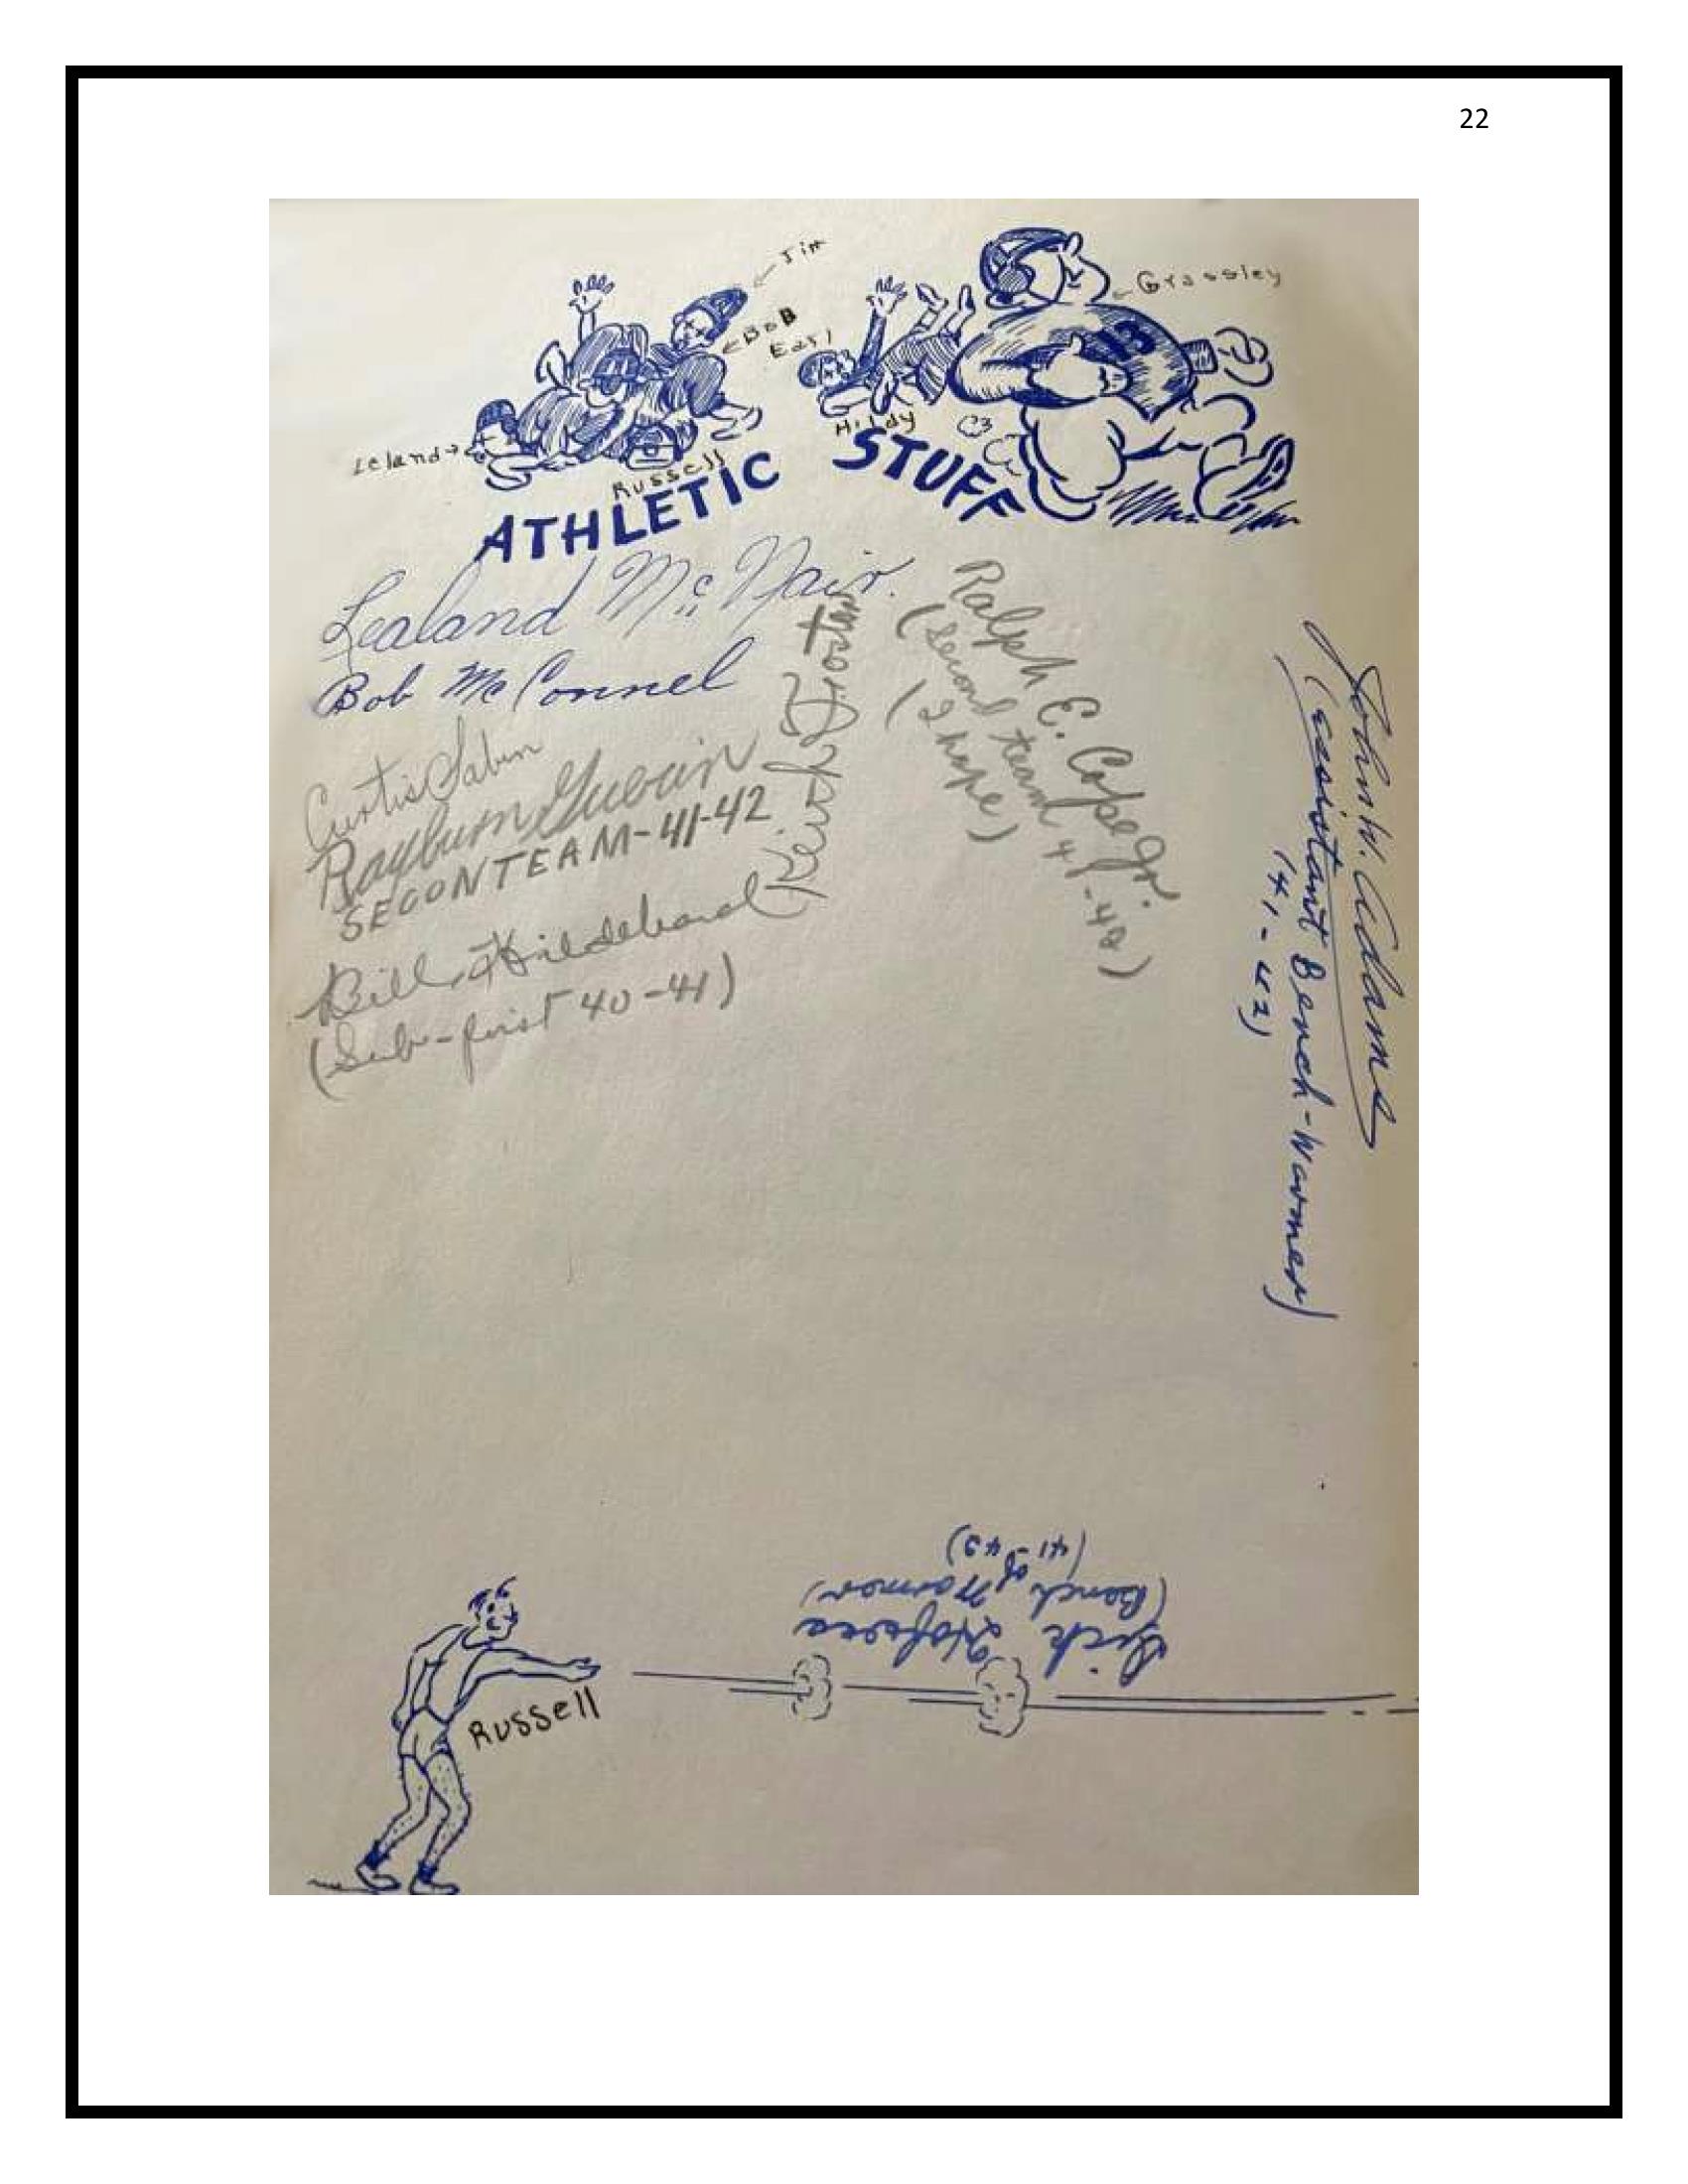 22
Jim
Grassley
BOB
Earl
Leland
Hildy
Russell
ATHLETIC STUFF
Lealand McNair.
Bob McConnel
Ralph E. Cope Jr.
(second team 41-42)
(I hope)
John W. Adams
(assistant Bench-Warmer)
(41-42)
Curtis Sabin
Rayburn
SECONTEAM-41-42
Keith
Bill Hildebrand
(Sub-first 40-41)
Dick
(Bench Warmer)
Russell